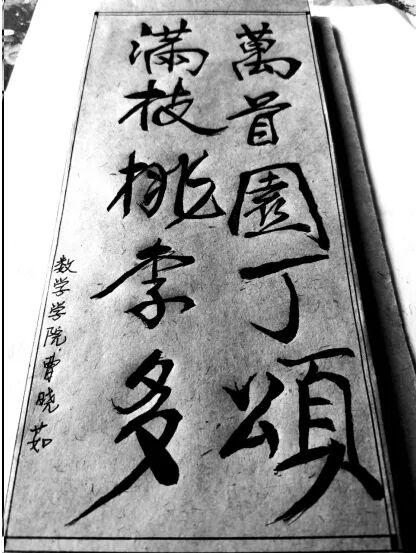 萬首園丁頌
滿枝桃李多
数学学院曹晓茹